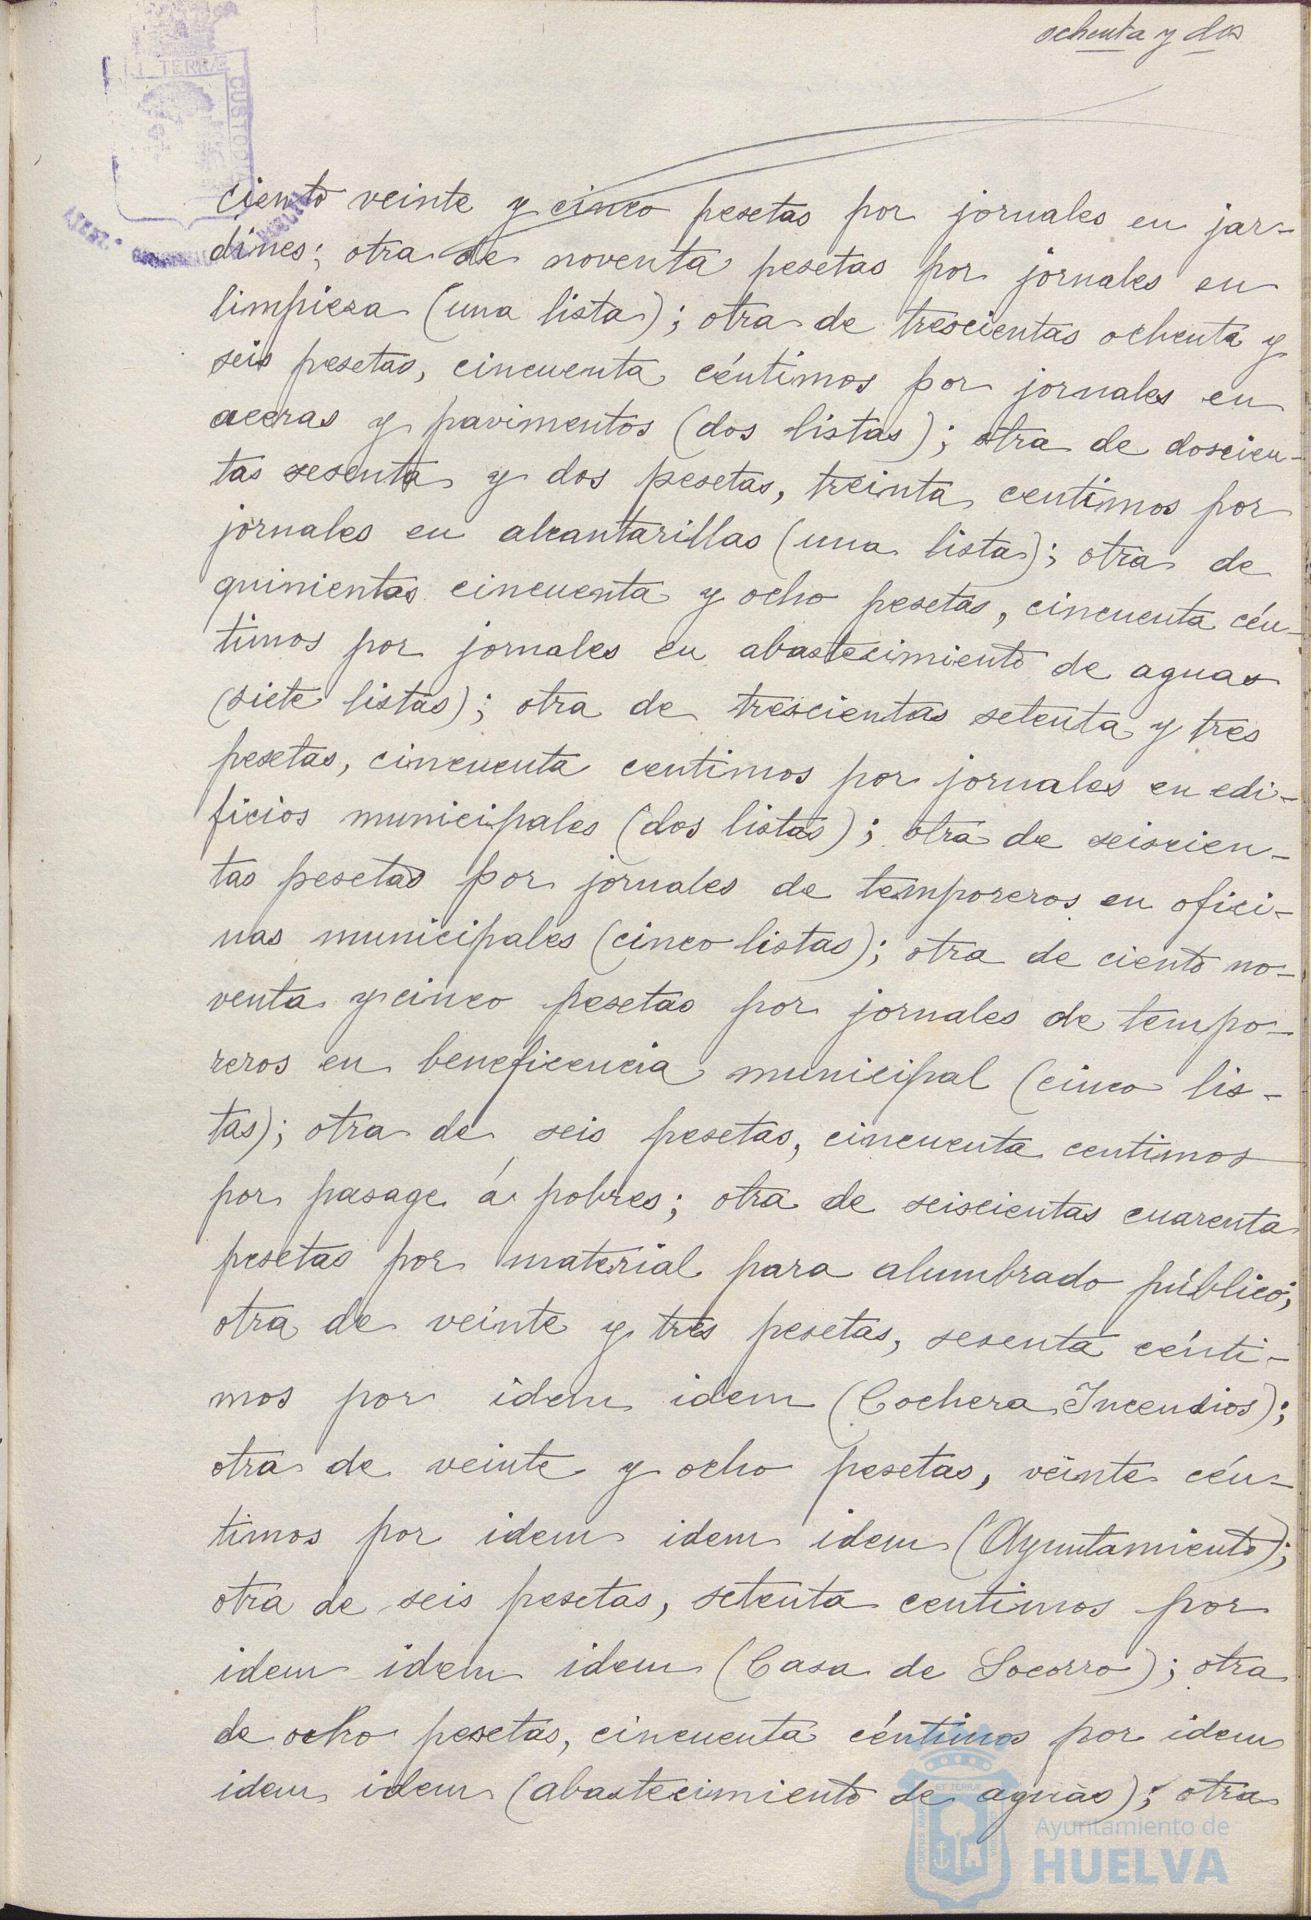 ochenta y dos
TERRÆ
CUSTODIA
ciento veinte y cinco pesetas por jornales en jar-
dines; otra de noventa pesetas por jornales en
limpieza (una lista); otra de trescientas ochenta y
seis pesetas, cincuenta céntimos por jornales en
aceras y pavimentos (dos listas); otra de doscien-
tas sesenta y dos pesetas, treinta centimos por
jornales en alcantarillas (una lista); otra de
quinientas cincuenta y ocho pesetas, cincuenta cén-
timos por jornales en abastecimiento de aguas
(siete listas); otra de trescientas setenta y tres
pesetas, cincuenta centimos por jornales en edi-
ficios municipales (dos listas); otra de seiscien-
tas pesetas por jornales de temporeros en ofici-
nas municipales (cinco listas); otra de ciento no-
venta y cinco pesetas por jornales de tempo-
reros en beneficencia municipal (cinco lis-
tas); otra de seis pesetas, cincuenta centimos
por pasage á pobres; otra de seiscientas cuarenta
pesetas por material para alumbrado público;
otra de veinte y tres pesetas, sesenta cénti-
mos por idem idem (Cochera Incendios);
otra de veinte y ocho pesetas, veinte cén-
timos por idem idem idem (Ayuntamiento);
otra de seis pesetas, setenta centimos por
idem idem idem (Casa de Socorro); otra
de ocho pesetas, cincuenta céntimos por idem
idem idem (abastecimiento de aguas); otra
Ayuntamiento de
HUELVA